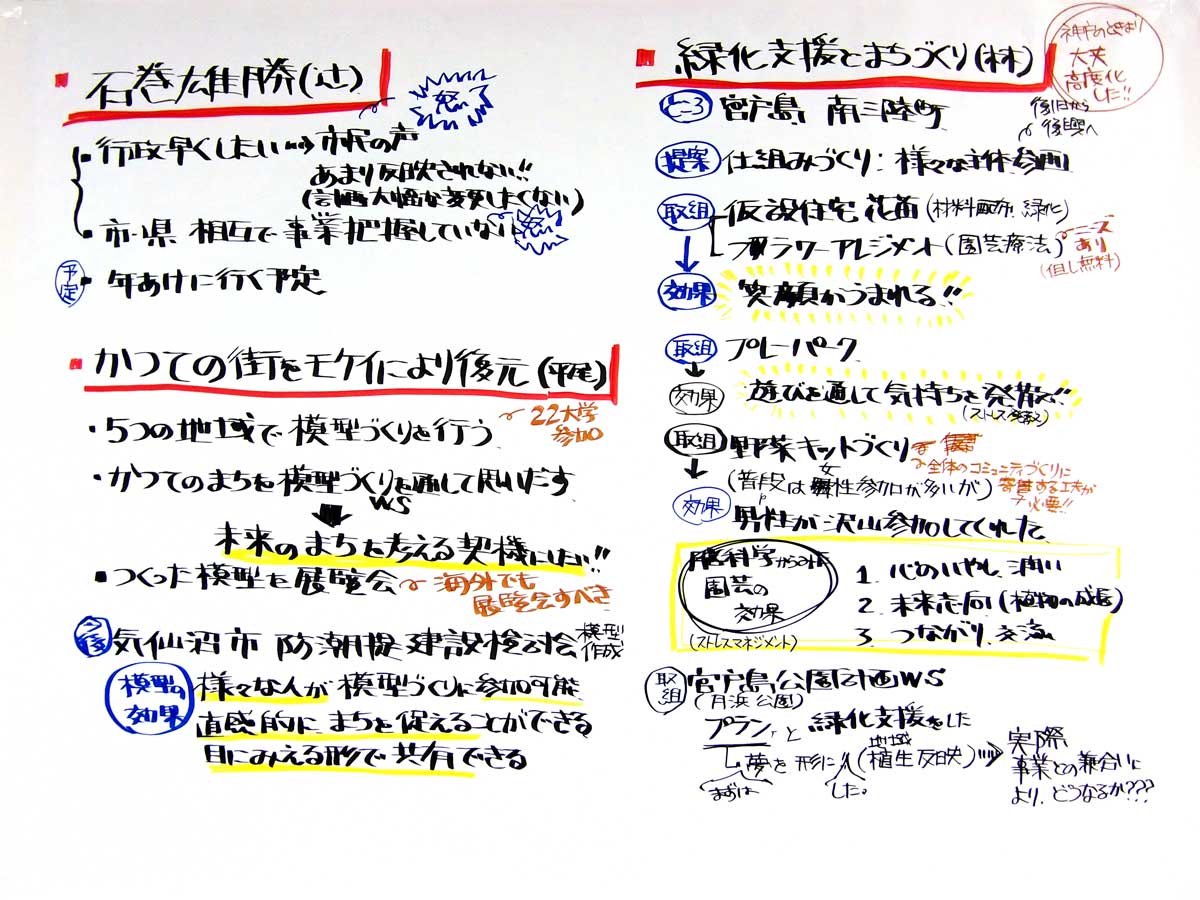 石巻雄勝(辻)
怒
・行政早くしたい⇒市民の声
あまり反映されない!!
(計画大幅な変更したくない)
・市・県 相互で事業把握していない
怒
予定
・年あけに行く予定
かつての街をモケイにより復元(平尾)
・5つの地域で模型づくりを行う
22大学
参加
・かつてのまちを模型づくりを通して思いだす
WS
未来のまちを考える契機にしたい!!
・つくった模型を展覧会
海外でも
展覧会すべき
今後
気仙沼市 防潮堤建設検討会
模型
作成
模型の
効果
様々な人が模型づくりに参加可能
直感的にまちを捉えることができる
目にみえる形で共有できる
緑化支援とまちづくり(林)
神戸のときより
大変
高度化
した!!
ところ
宮戸島 南三陸町
復旧から
復興へ
提案
仕組みづくり:様々な主体参画
取組
仮設住宅 花苗(材料配布、緑化)
フラワーアレジメント(園芸療法)
ニーズ
あり
(但し無料)
効果
笑顔がうまれる!!
取組
プレーパーク
効果
遊びを通して気持ちを発散!!
(ストレス発散)
取組
野菜キットづくり
全体のコミュニティづくりに
寄与する工夫が
必要!!
(普段は女性参加が多いが)
効果
男性が沢山参加してくれた
脳科学からみた
園芸の
効果
(ストレスマネジメント)
1. 心のいやし、潤い
2. 未来志向(植物の成長)
3. つながり、交流
取組
宮戸島公園計画WS
(月浜公園)
プランと緑化支援をした
地域
夢を形に(植生反映)
まずは
した。
実際
事業との兼合いに
より、どうなるか???